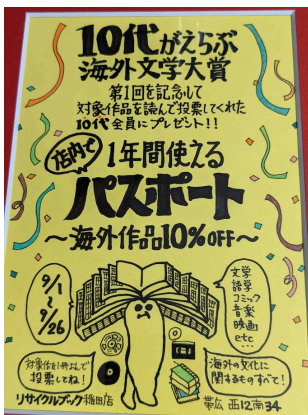 10代がえらぶ
海外文学大賞
第1回を記念して
対象作品を読んで投票してくれた
10代全員にプレゼント!!
店内で
1年間使える
パスポート
〜海外作品10%OFF〜
9/1
〜
9/26
文学
語学
コミック
音楽
映画
etc...
対象作を1冊よんで
投票してね!
海外の文化に
関するものすべて!
リサイクルブック稲田店
帯広 西12南34